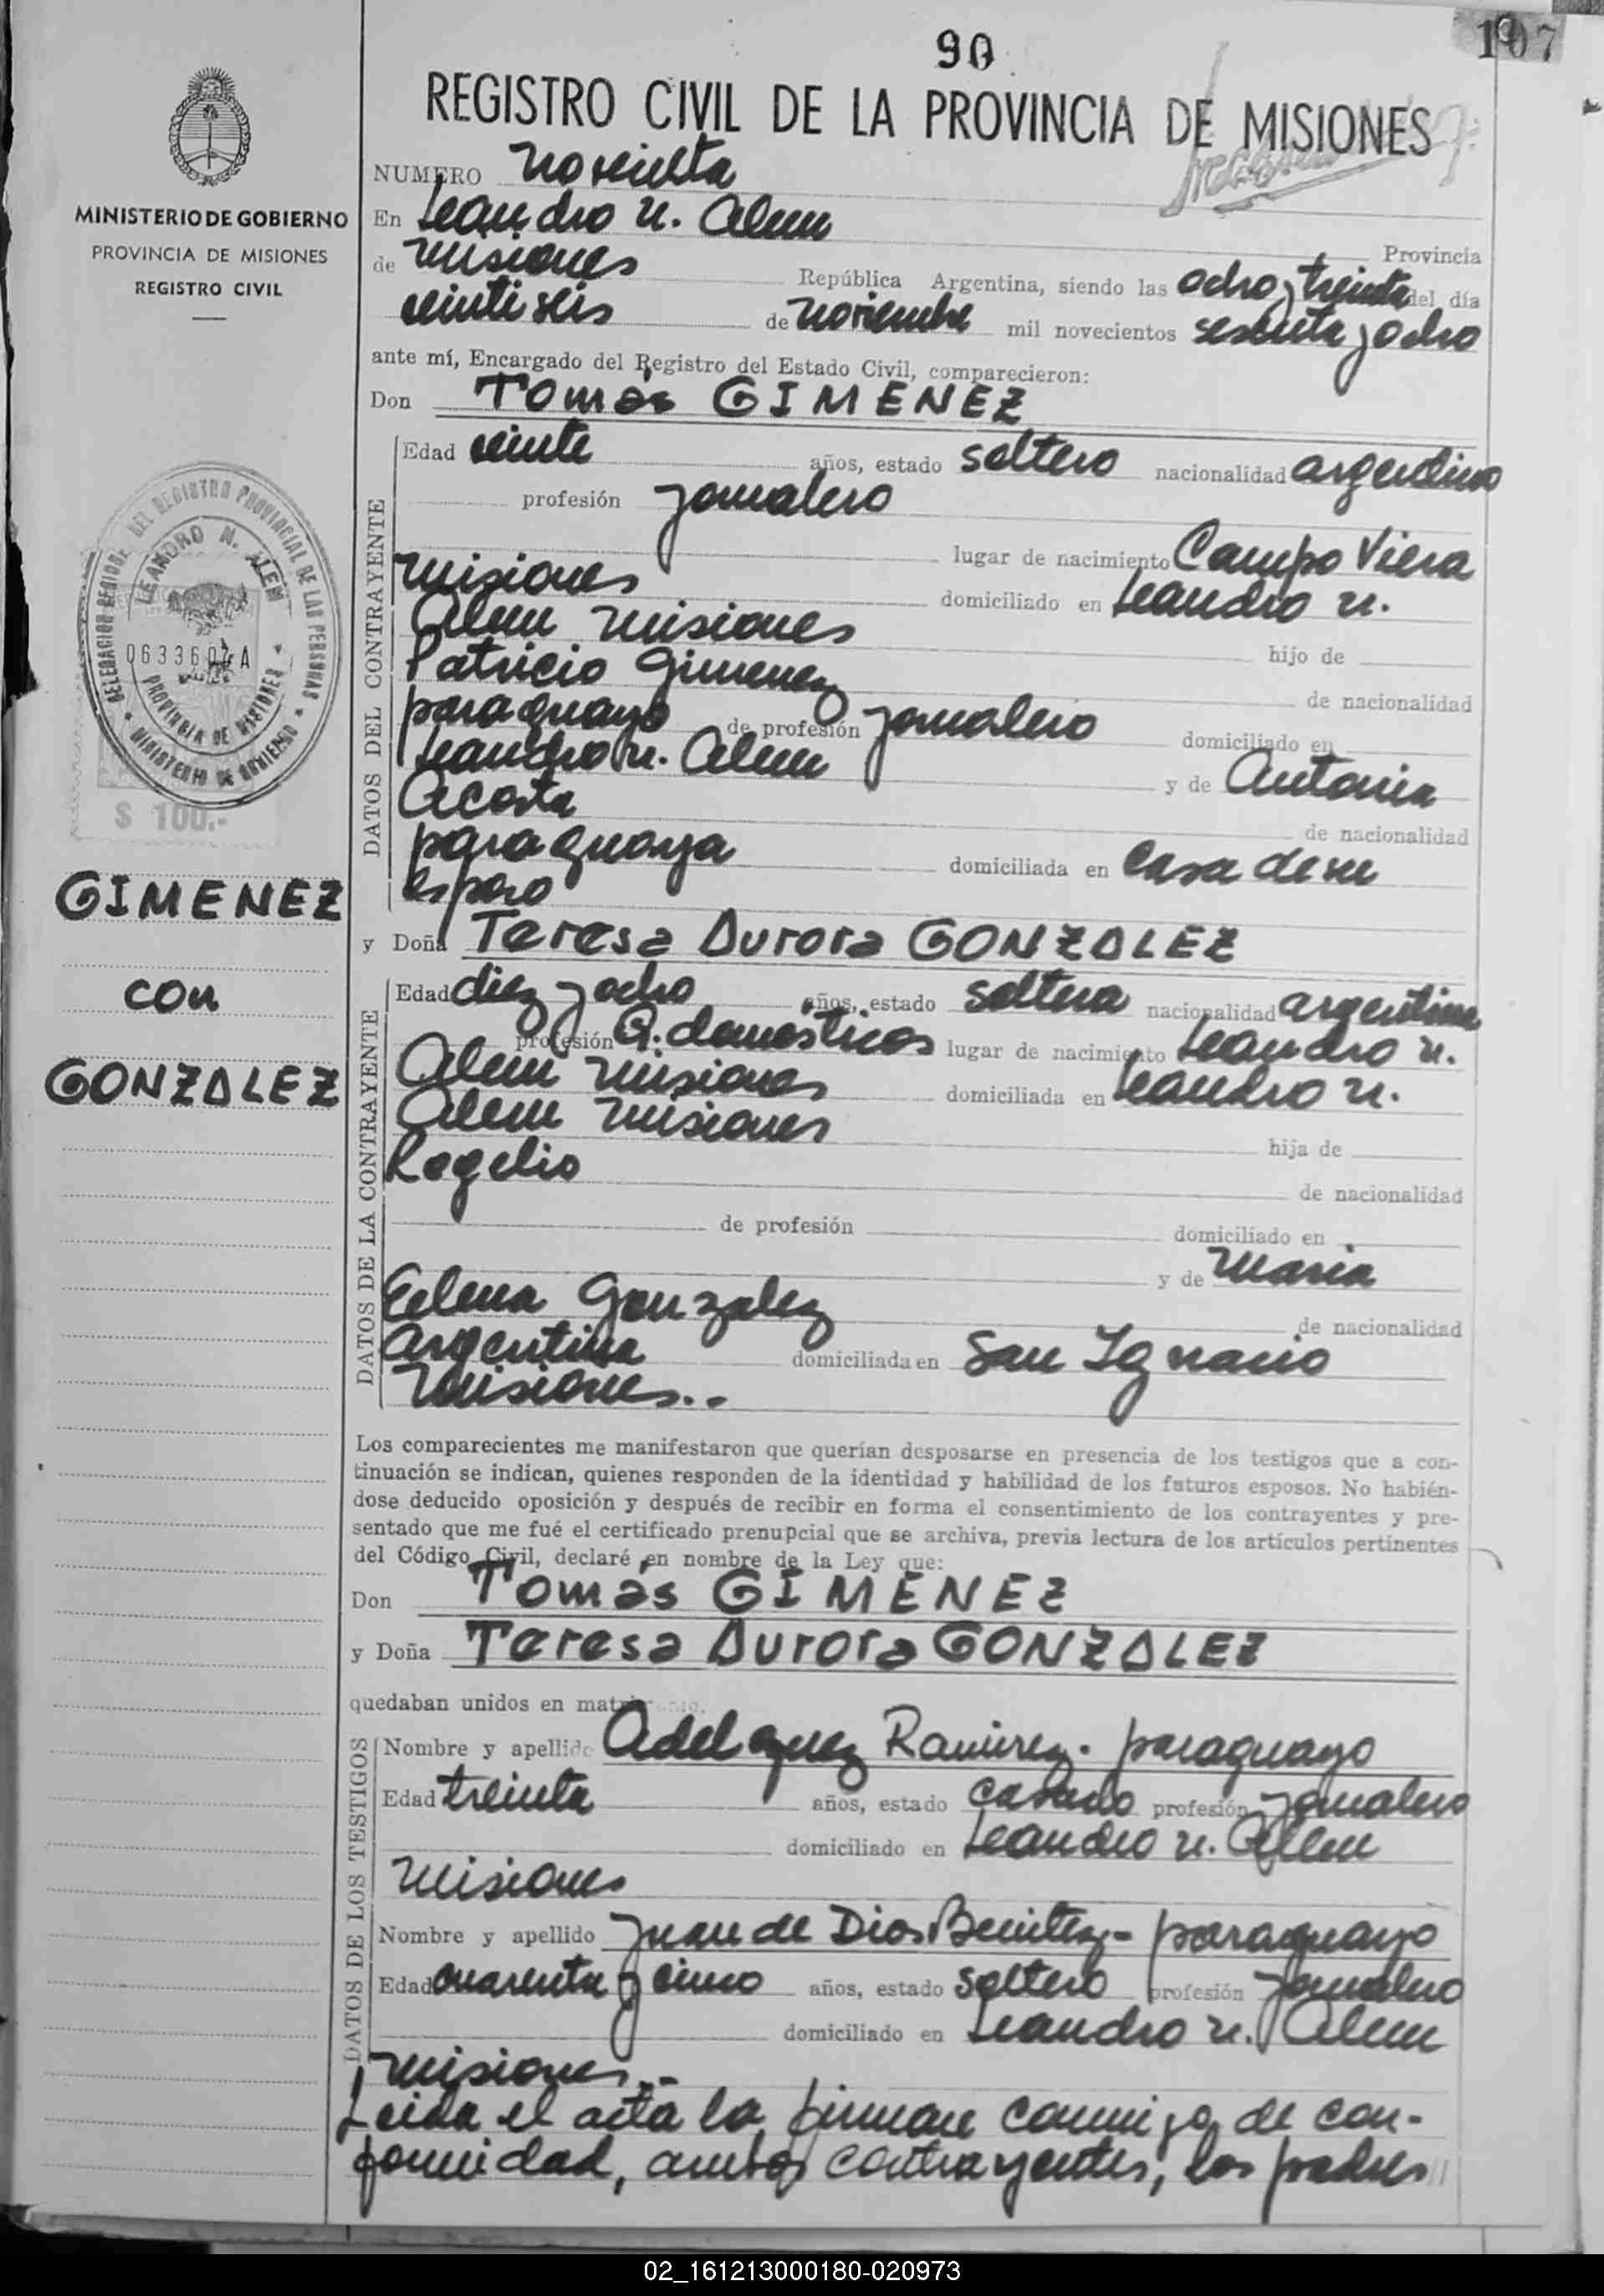 90
107
REGISTRO CIVIL DE LA PROVINCIA DE MISIONES
MINISTERIO DE GOBIERNO
PROVINCIA DE MISIONES
REGISTRO CIVIL
NUMERO Noventa
En Leandro N. Alem Provincia
de Misiones República Argentina, siendo las ocho y treinta del día
veintiseis de Noviembre mil novecientos sesenta y ocho
ante mí, Encargado del Registro del Estado Civil, comparecieron:
Don Tomás GIMENEZ
DATOS DEL CONTRAYENTE
Edad veinte años, estado soltero nacionalidad argentino
profesión jornalero
lugar de nacimiento Campo Viera
Misiones domiciliado en Leandro N.
Alem Misiones hijo de
Patricio Gimenez de nacionalidad
paraguayo de profesión jornalero domiciliado en
Leandro N. Alem y de Antonia
Acosta de nacionalidad
paraguaya domiciliada en casa de su
esposo
DELEGACION REGIONAL DEL REGISTRO PROVINCIAL DE LAS PERSONAS
LEANDRO N. ALEM
PROVINCIA DE MISIONES
MINISTERIO DE GOBIERNO
$ 100.-
GIMENEZ
con
GONZALEZ
y Doña Teresa Aurora GONZALEZ
DATOS DE LA CONTRAYENTE
Edad diez y ocho años, estado soltera nacionalidad argentina
profesión Q. domésticos lugar de nacimiento Leandro N.
Alem Misiones domiciliada en Leandro N.
Alem Misiones hija de
Rogelio de nacionalidad
de profesión domiciliado en
y de Maria
Elena Gonzalez de nacionalidad
argentina domiciliada en San Ignacio
Misiones..-
Los comparecientes me manifestaron que querían desposarse en presencia de los testigos que a con-
tinuación se indican, quienes responden de la identidad y habilidad de los futuros esposos. No habién-
dose deducido oposición y después de recibir en forma el consentimiento de los contrayentes y pre-
sentado que me fué el certificado prenupcial que se archiva, previa lectura de los artículos pertinentes
del Código Civil, declaré en nombre de la Ley que:
Don Tomás GIMENEZ
y Doña Teresa Aurora GONZALEZ
quedaban unidos en matrimonio.
DATOS DE LOS TESTIGOS
Nombre y apellido Adelquez Ramirez.- paraguayo
Edad treinta años, estado casado profesión jornalero
domiciliado en Leandro N. Alem
Misiones
Nombre y apellido Juan de Dios Benitez.- paraguayo
Edad cuarenta y cinco años, estado soltero profesión jornalero
domiciliado en Leandro N. Alem
Misiones.-
Leida el acta la firman conmigo de con-
formidad, ambos contrayentes, los padres //
02_161213000180-020973